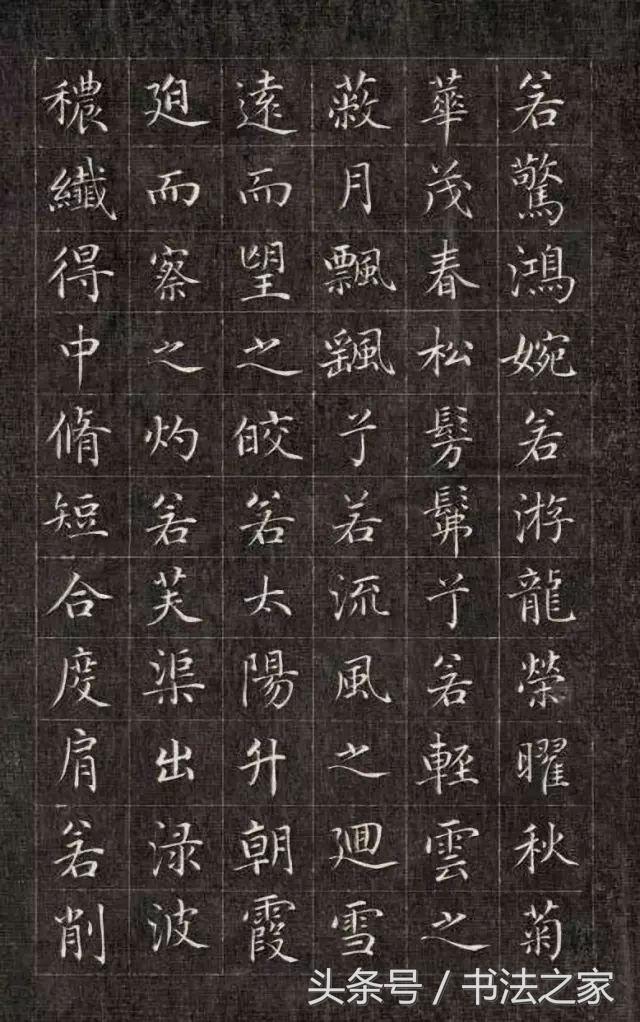 若驚鴻婉若游龍榮曜秋菊
華茂春松髣髴兮若輕雲之
蔽月飄颻兮若流風之廻雪
遠而望之皎若太陽升朝霞
廹而察之灼若芙渠出淥波
穠纖得中脩短合度肩若削
头条号 / 书法之家